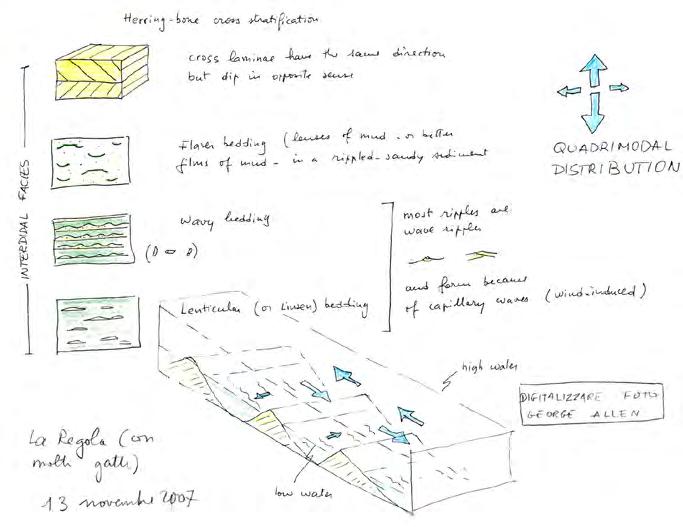 Herring-bone cross stratification
cross laminae have the same direction
but dip in opposite sense
QUADRIMODAL
DISTRIBUTION
INTERDIDAL FACIES
Flaser bedding (lenses of mud - or better
films of mud - in a rippled-sandy sediment
wavy bedding
most ripples are
wave ripples
and form because
of capillary waves (wind-induced)
Lenticular (or Linsen) bedding
high water
low water
DIGITALIZZARE FOTO
GEORGE ALLEN
La Regola (con
molti gatti)
13 novembre 2007